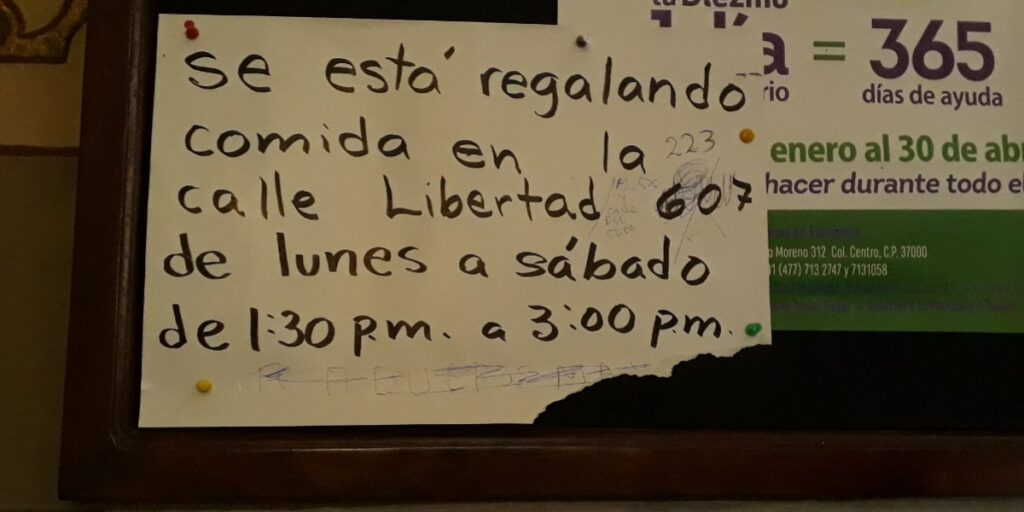 se está regalando
comida en la 223
calle Libertad 607
de lunes a sábado
de 1:30 p.m. a 3:00 p.m.
a = 365
rio días de ayuda
enero al 30 de ab
hacer durante todo el
Moreno 312 Col. Centro, C.P. 37000
01 (477) 713 2747 y 7131058